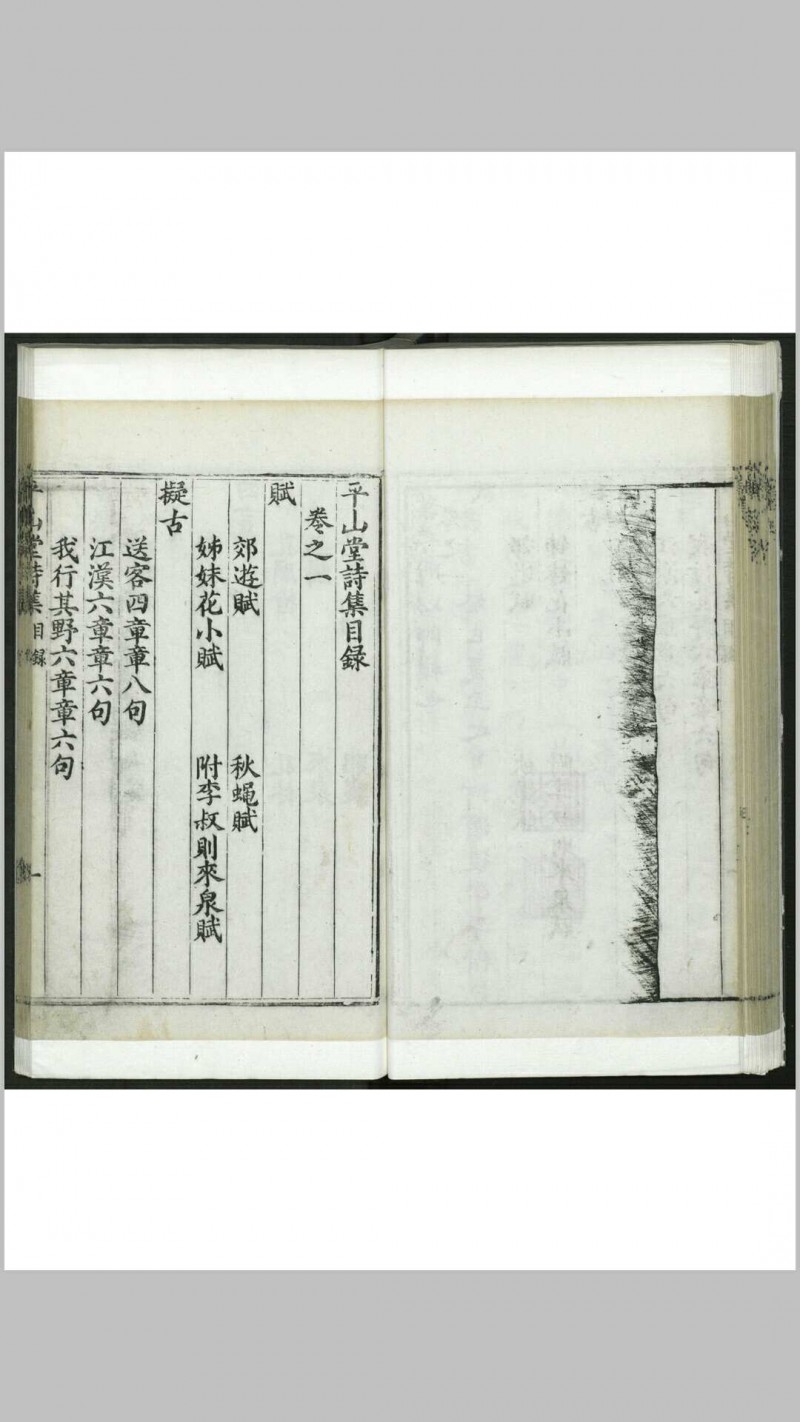 平山堂詩集目録
卷之一
賦
郊遊賦 秋蝇賦
姊妹花小賦 附李叔則來泉賦
擬古
送客四章章八句
江漢六章章六句
我行其野六章章六句
平山堂詩集 目録 一